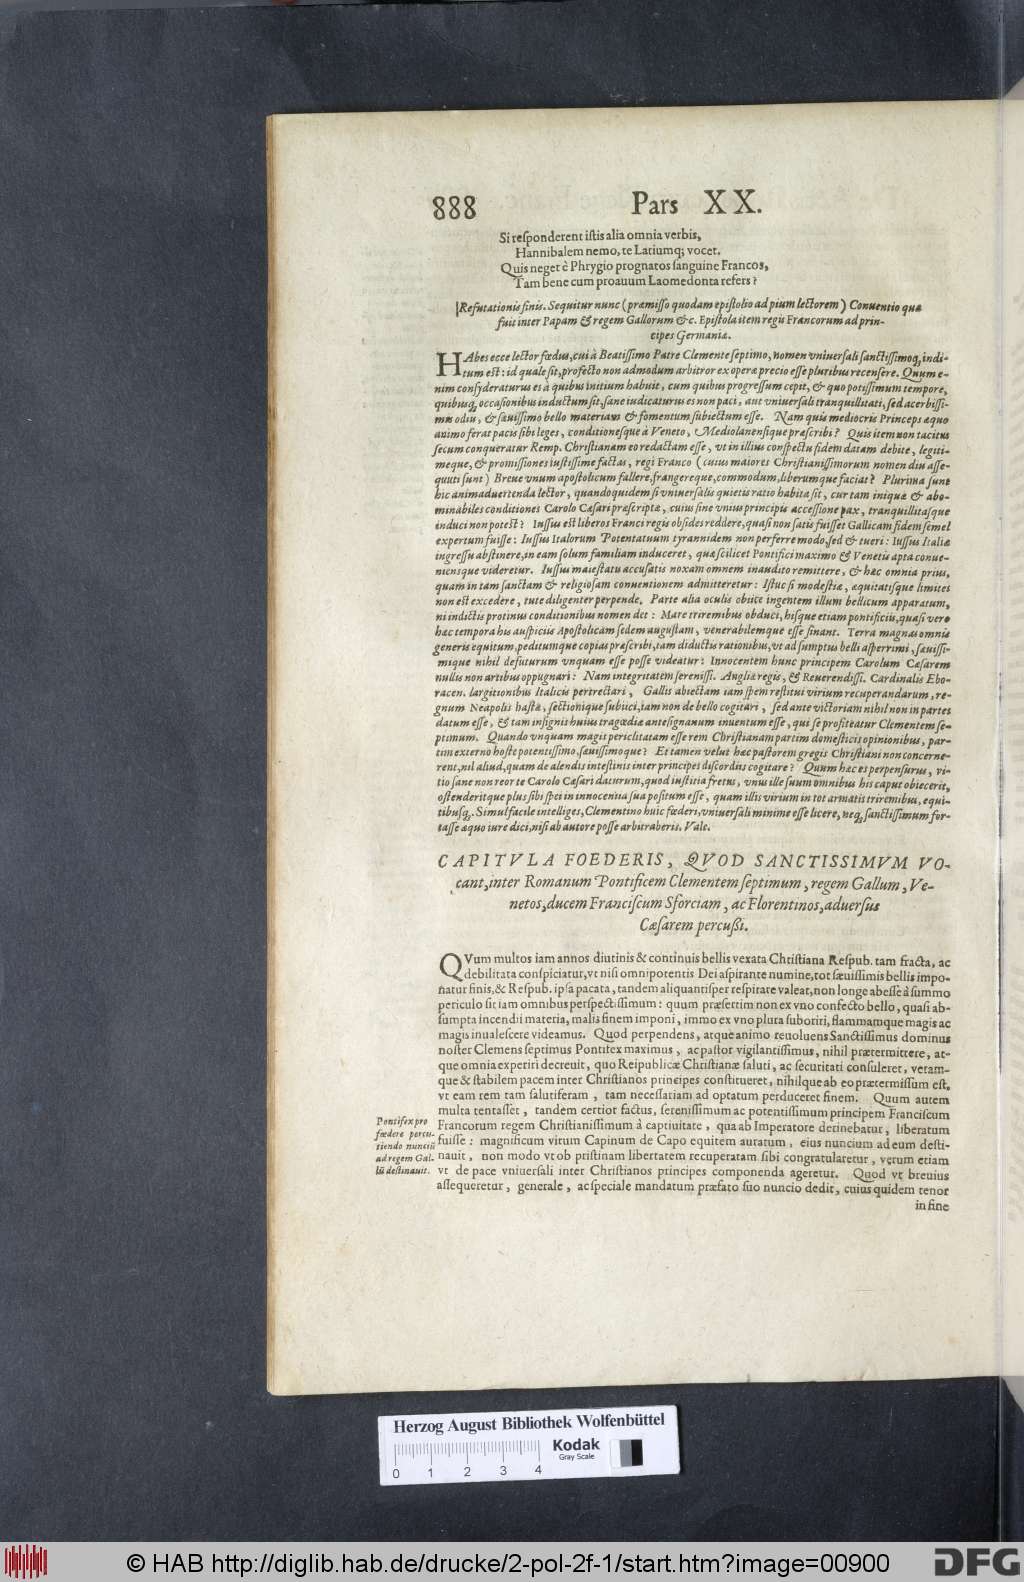 888 Pars XX.
Si responderent istis alia omnia verbis,
Hannibalem nemo, te Latiumq; vocet.
Quis neget è Phrygio prognatos sanguine Francos,
Tam bene cum proauum Laomedonta refers?
Refutationis finis. Sequitur nunc (præmisso quodam epistolio ad pium lectorem) Conuentio quæ
fuit inter Papam & regem Gallorum &c. Epistola item regis Francorum ad prin-
cipes Germaniæ.
HAbes ecce lector fœdus, cui à Beatissimo Patre Clemente septimo, nomen vniuersali sanctissimoq; indi-
tum est: id quale sit, profecto non admodum arbitror ex operæ precio esse pluribus recensere. Quum e-
nim consyderaturus es à quibus initium habuit, cum quibus progressum cepit, & quo potissimum tempore,
quibusq; occasionibus inductum sit, sane iudicaturus es non paci, aut vniuersali tranquillitati, sed acerbissi-
mo odiu, & sæuissimo bello materiam & fomentum subiectum esse. Nam quis mediocris Princeps æquo
animo ferat pacis sibi leges, conditionesque à Veneto, Mediolanensique præscribi? Quis item non tacitus
secum conqueratur Remp. Christianam eo redactam esse, vt in illius conspectu fidem datam debite, legiti-
meque, & promissiones iustissime factas, regi Franco (cuius maiores Christianissimorum nomen diu asse-
quuti sunt) Breue vnum apostolicum fallere, frangereque, commodum, liberumque faciat? Plurima sunt
hic animaduertenda lector, quandoquidem si vniuersalis quietis ratio habita sit, cur tam iniquæ & abo-
minabiles conditiones Carolo Cæsari præscriptæ, cuius sine vnius principis accessione pax, tranquillitasque
induci non potest? Iussus est liberos Franci regis obsides reddere, quasi non satis fuisset Gallicam fidem semel
expertum fuisse: Iussus Italorum Potentatuum tyrannidem non perferre modo, sed & tueri: Iussus Italiæ
ingressu abstinere, in eam solum familiam induceret, quæ scilicet Pontifici maximo & Venetis apta conue-
niensque videretur. Iussus maiestatis accusatis noxam omnem inaudito remittere, & hæc omnia prius,
quam in tam sanctam & religiosam conuentionem admitteretur: Istuc si modestiæ, æquitatisque limites
non est excedere, tute diligenter perpende. Parte alia oculis obiice ingentem illum bellicum apparatum,
ni indictis protinus conditionibus nomen det: Mare triremibus obduci, hisque etiam pontificiis, quasi vero
hæc tempora his auspiciis Apostolicam sedem augustam, venerabilemque esse sinant. Terra magnas omnis
generis equitum, peditumque copias præscribi, iam diductis rationibus, vt ad sumptus belli asperrimi, sæuissi-
mique nihil defuturum vnquam esse posse videatur: Innocentem hunc principem Carolum Cæsarem
nullis non artibus oppugnari: Nam integritatem sereniss. Angliæ regis, & Reuerendiss. Cardinalis Ebo-
racen. largitionibus Italicis pertrectari, Gallis abiectam iam spem restitui virium recuperandarum, re-
gnum Neapolis hastæ, sectionique subiici, iam non de bello cogitari, sed ante victoriam nihil non in partes
datum esse, & tam insignis huius tragœdiæ antesignanum inuentum esse, qui se profiteatur Clementem se-
ptimum. Quando vnquam magis periclitatam esse rem Christianam partim domesticis opinionibus, par-
tim externo hoste potentissimo, sæuissimoque? Et tamen velut hæc pastorem gregis Christiani non concerne-
rent, nil aliud, quam de alendis intestinis inter principes discordiis cogitare? Quum hæc es perpensurus, vi-
tio sane non reor te Carolo Cæsari daturum, quod iustitia fretus, vnus ille suum omnibus his caput obiecerit,
ostenderitque plus sibi spei in innocentia sua positum esse, quam illis virium in tot armatis triremibus, equi-
tibusq;. Simul facile intelliges, Clementino huic fœderi, vniuersali minime esse licere, neq; sanctissimum for-
tasse æquo iure dici, nisi ab autore posse arbitraberis. Vale.
CAPITVLA FOEDERIS, QVOD SANCTISSIMVM VO-
cant, inter Romanum Pontificem Clementem septimum, regem Gallum, Ve-
netos, ducem Franciscum Sforciam, ac Florentinos, aduersus
Cæsarem percussi.
QVum multos iam annos diutinis & continuis bellis vexata Christiana Respub. tam fracta, ac
debilitata conspiciatur, vt nisi omnipotentis Dei aspirante numine, tot sæuissimis bellis impo-
natur finis, & Respub. ipsa pacata, tandem aliquantisper respirare valeat, non longe abesse à summo
periculo sit iam omnibus perspectissimum: quum præsertim non ex vno confecto bello, quasi ab-
sumpta incendii materia, malis finem imponi, immo ex vno plura suboriri, flammamque magis ac
magis inualescere videamus. Quod perpendens, atque animo reuoluens Sanctissimus dominus
noster Clemens septimus Pontifex maximus, ac pastor vigilantissimus, nihil prætermittere, at-
que omnia experiri decreuit, quo Reipublicæ Christianæ saluti, ac securitati consuleret, veram-
que & stabilem pacem inter Christianos principes constitueret, nihilque ab eo prætermissum est,
vt eam rem tam salutiferam, tam necessariam ad optatum perduceret finem. Quum autem
multa tentasset, tandem certior factus, serenissimum ac potentissimum principem Franciscum
Francorum regem Christianissimum à captiuitate, qua ab Imperatore detinebatur, liberatum
fuisse: magnificum virum Capinum de Capo equitem auratum, eius nuncium ad eum desti-
nauit, non modo vt ob pristinam libertatem recuperatam sibi congratularetur, verum etiam
vt de pace vniuersali inter Christianos principes componenda ageretur. Quod vt breuius
assequeretur, generale, ac speciale mandatum præfato suo nuncio dedit, cuius quidem tenor
in fine
Pontifex pro
fœdere percu-
tiendo nunciũ
ad regem Gal-
lũ destinauit.
Herzog August Bibliothek Wolfenbüttel
0 1 2 3 4
Kodak
Gray Scale
© HAB http://diglib.hab.de/drucke/2-pol-2f-1/start.htm?image=00900
DFG